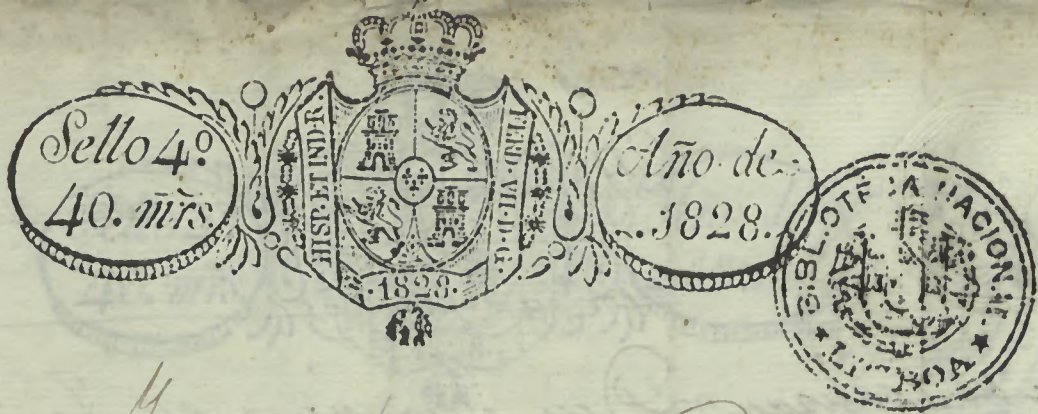 Sello 4º
40. mrs
HISP. ET IND. R.
FERD. VII. D. G.
·1828·
Año de
.1828.
BIBLIOTECA NACIONAL
★ LISBOA ★